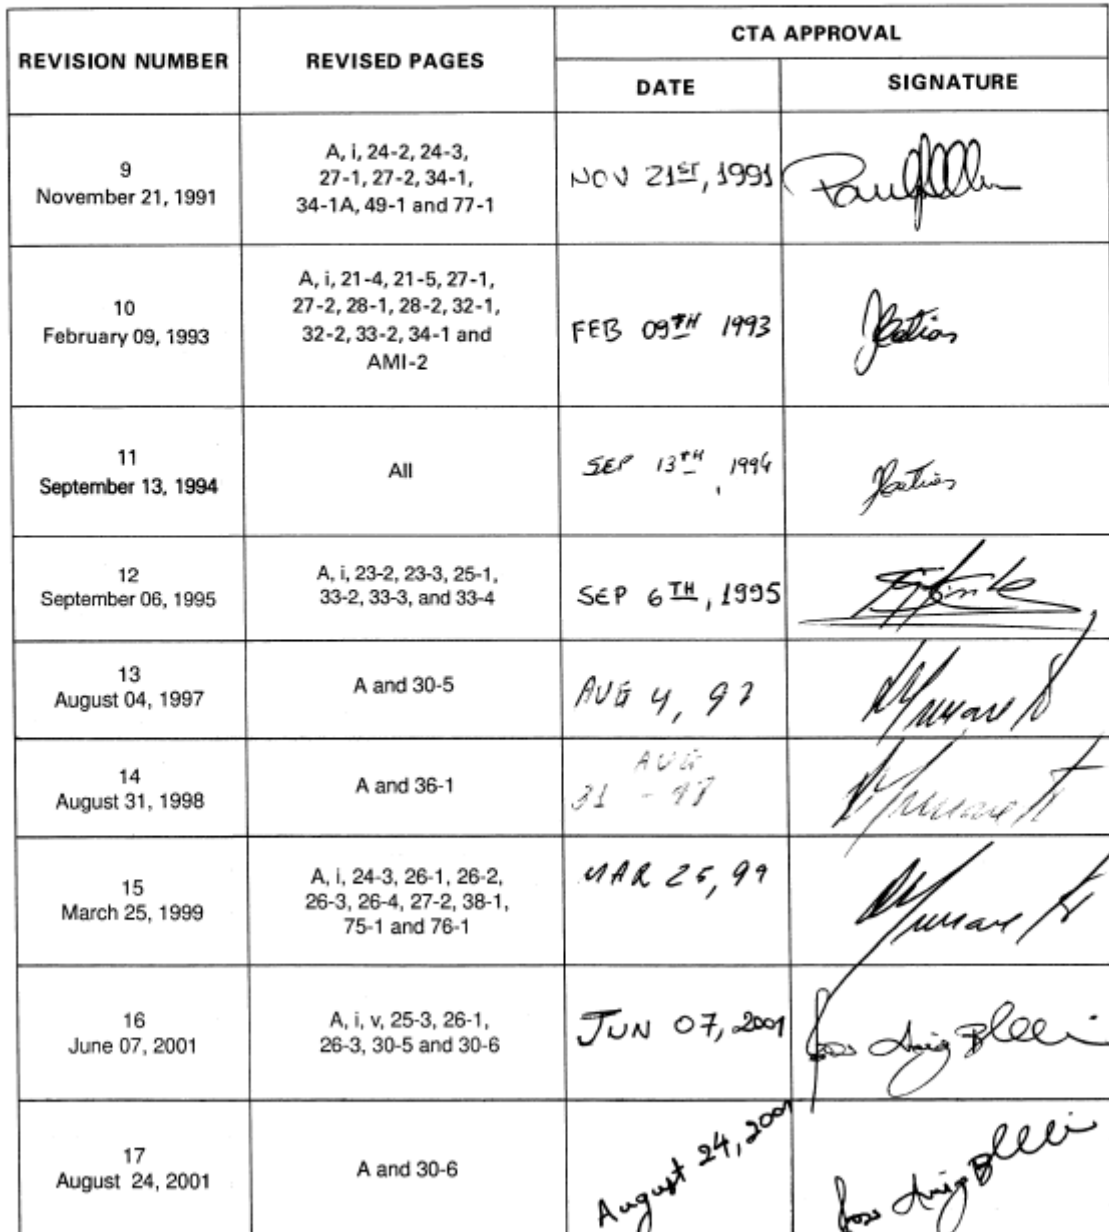 REVISION NUMBER
REVISED PAGES
CTA APPROVAL
DATE
SIGNATURE
9
November 21, 1991
A, i, 24-2, 24-3,
27-1, 27-2, 34-1,
34-1A, 49-1 and 77-1
NOV 21ST, 1991
10
February 09, 1993
A, i, 21-4, 21-5, 27-1,
27-2, 28-1, 28-2, 32-1,
32-2, 33-2, 34-1 and
AMI-2
FEB 09TH 1993
11
September 13, 1994
All
SEP 13TH, 1994
12
September 06, 1995
A, i, 23-2, 23-3, 25-1,
33-2, 33-3, and 33-4
SEP 6TH, 1995
13
August 04, 1997
A and 30-5
AUG 4, 97
14
August 31, 1998
A and 36-1
AUG
31 - 98
15
March 25, 1999
A, i, 24-3, 26-1, 26-2,
26-3, 26-4, 27-2, 38-1,
75-1 and 76-1
MAR 25, 99
16
June 07, 2001
A, i, v, 25-3, 26-1,
26-3, 30-5 and 30-6
JUN 07, 2001
17
August 24, 2001
A and 30-6
August 24, 2001